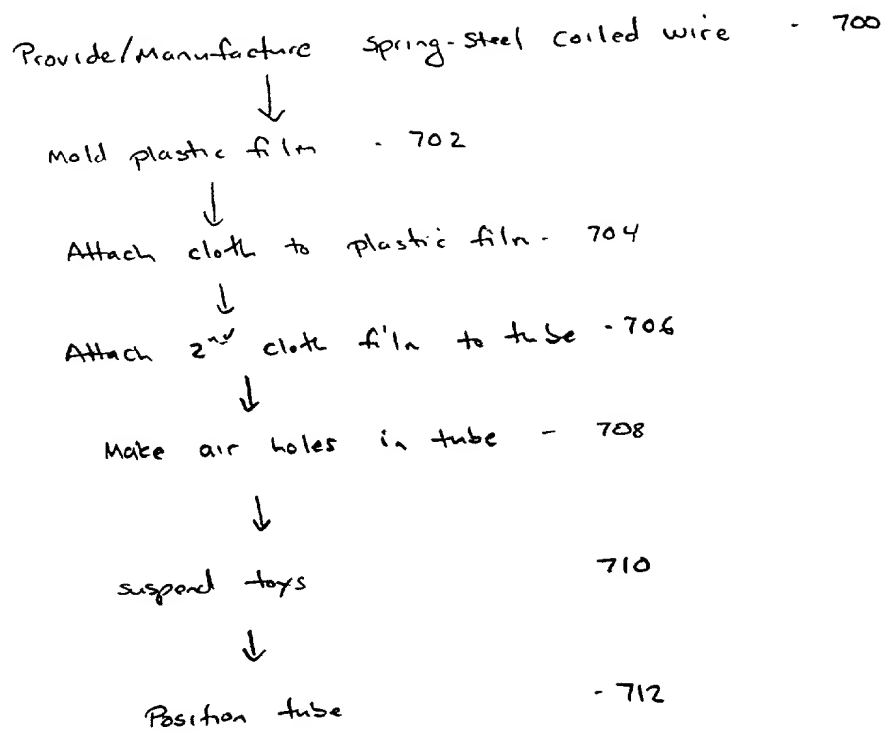 Provide/Manufacture Spring-Steel Coiled wire - 700
Mold plastic film - 702
Attach cloth to plastic film - 704
Attach 2nd cloth film to tube - 706
Make air holes in tube - 708
suspend toys 710
Position tube - 712